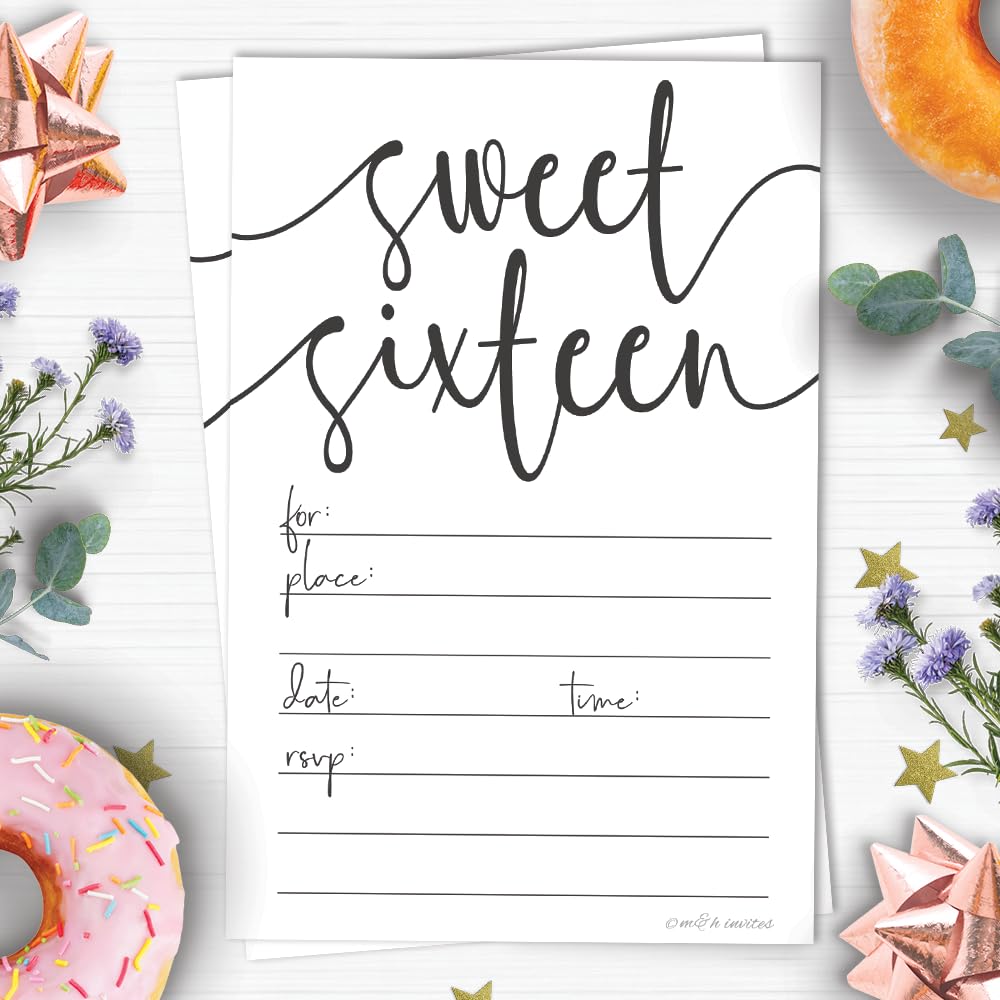 sweet
sixteen
for:
place:
date: time:
rsvp:
© m&h invites